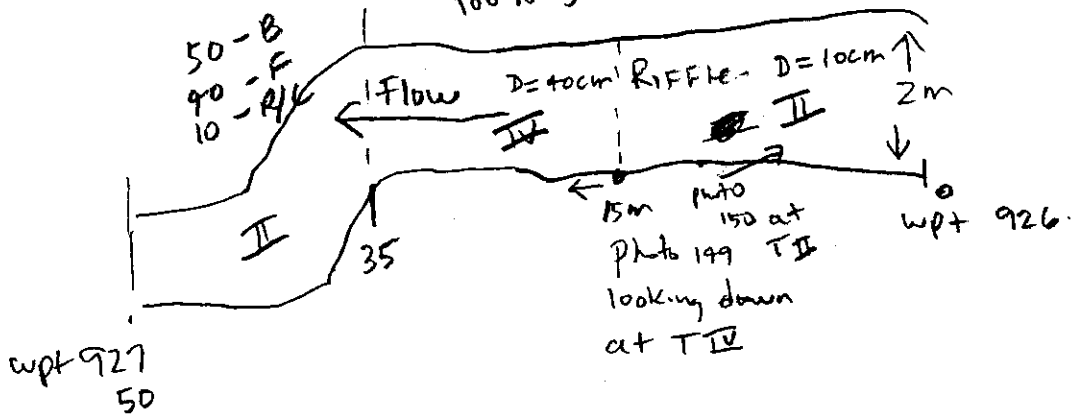 50 - B
90 - F
10 - R/C
Flow
D=40cm
RIFFLE
D=10cm
2m
IV
II
II
35
15m
photo
150 at
TII
wpt 926.
Photo 149
looking down
at T IV
wpt 927
50